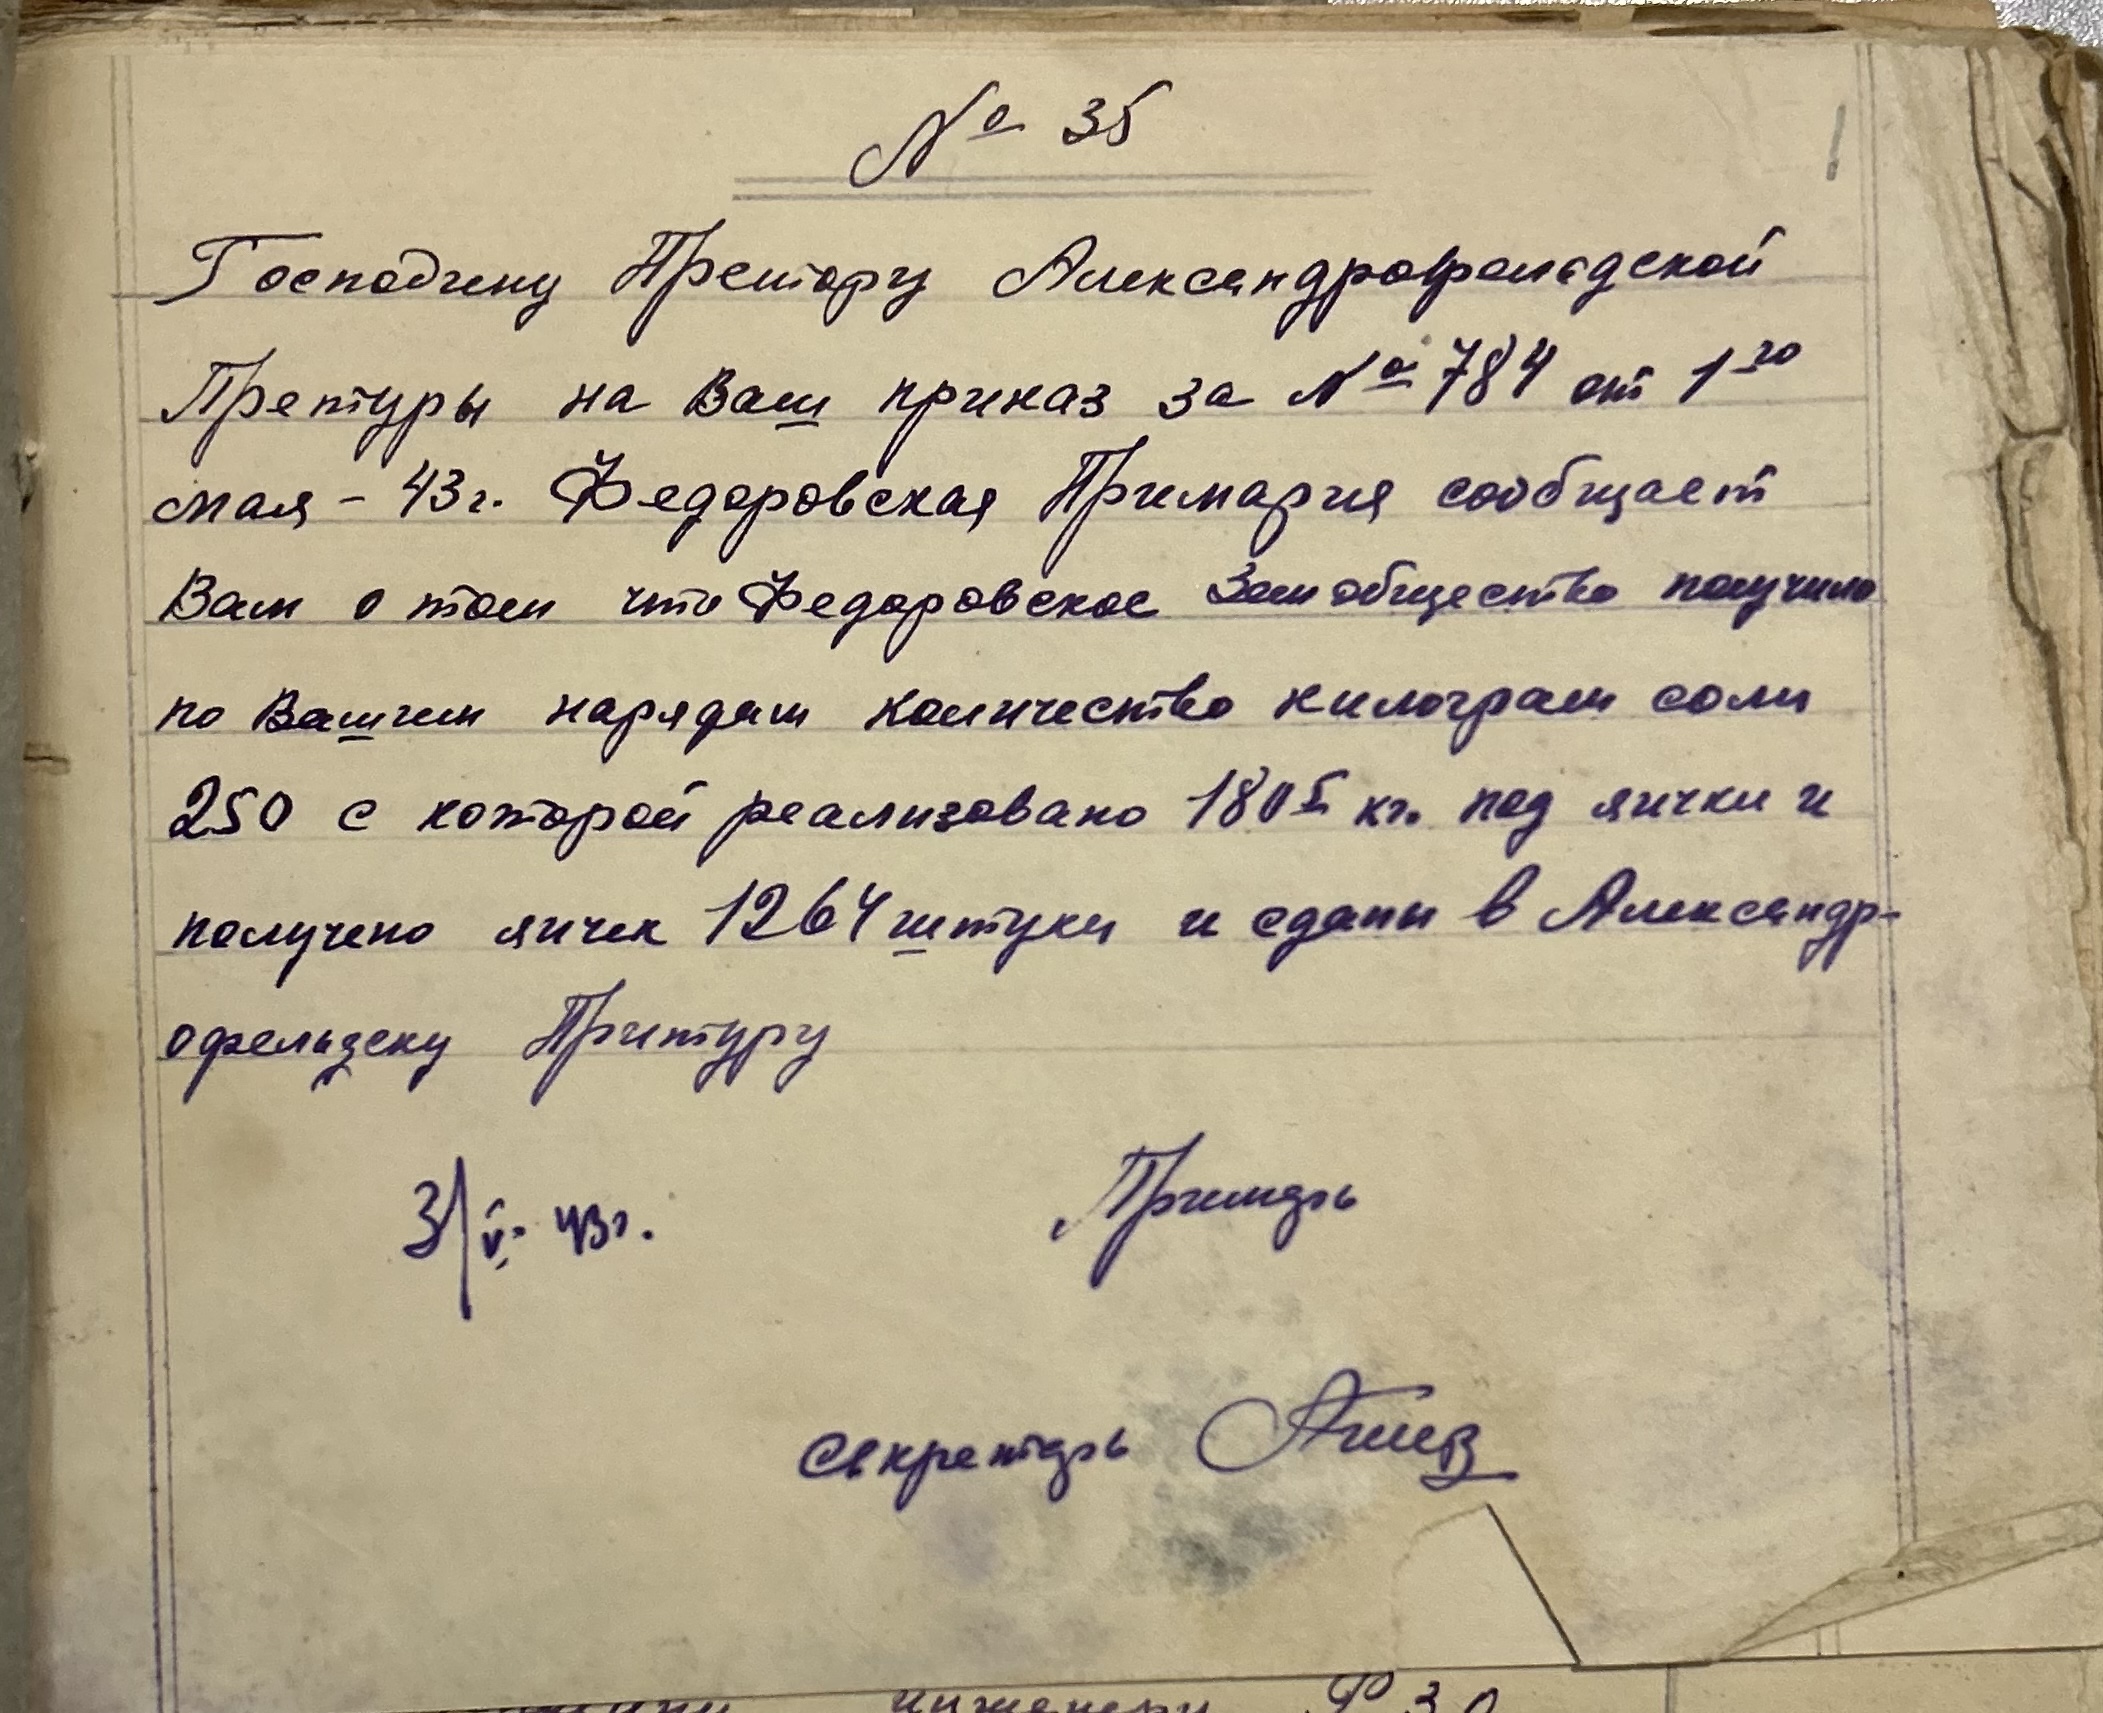 № 35
Господину Претору Александрофельдской
Претуры на Ваш приказ за № 784 от 1го
мая – 43 г. Федоровская Примария сообщает
Вам о том что ФедоровскоеЗемобщество получило
по Вашим нарядам количество килограм соли
250 с которой реализовано 180 кг. под яички и
получено яичек 1264 штуки и сданы в Александр-
офельдску Притуру
3/V – 43 г.
Примарь
Секретарь